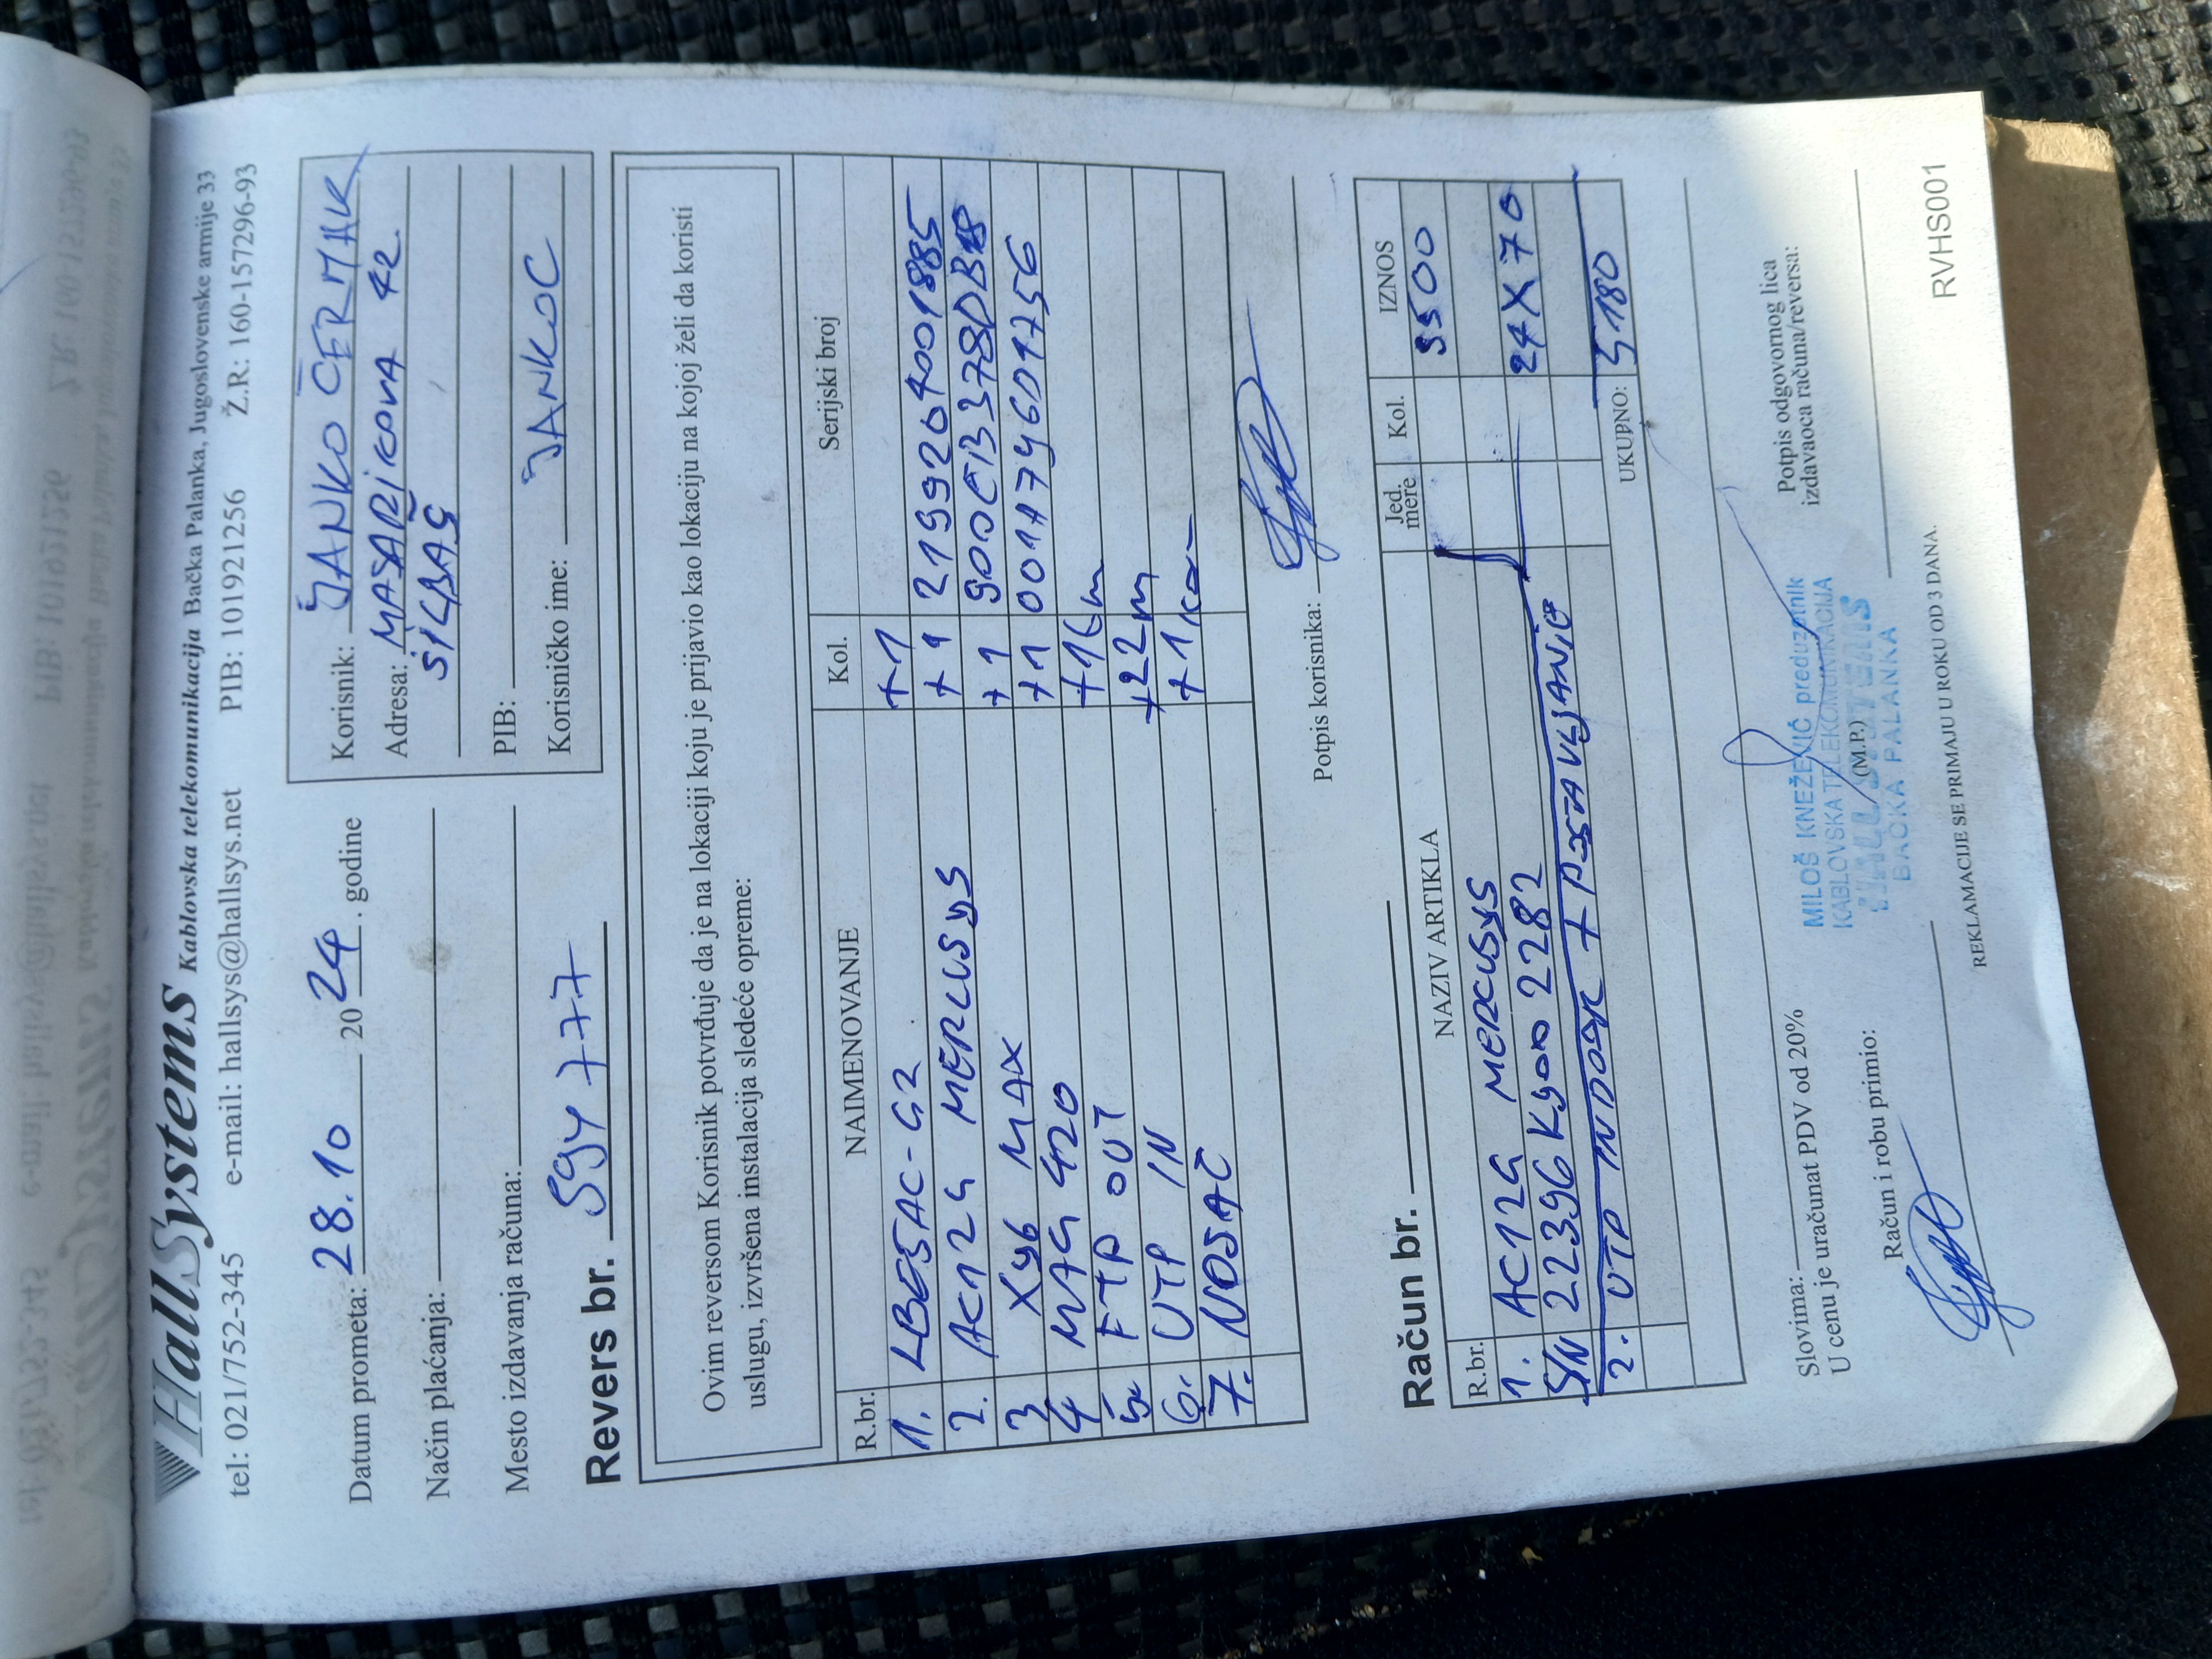 HallSystems Kablovska telekomunikacija Bačka Palanka, Jugoslovenske armije 33
tel: 021/752-345 e-mail: hallsys@hallsys.net PIB: 101921256 Ž.R: 160-157296-93
Datum prometa: 28.10 2024. godine
Način plaćanja:
Mesto izdavanja računa:
Korisnik: JANKO ČERMAK
Adresa: MASARIKOVA 42.
SILBAŠ
PIB:
Korisničko ime: JANKOC
Revers br. 594 777
Ovim reversom Korisnik potvrđuje da je na lokaciji koju je prijavio kao lokaciju na kojoj želi da koristi
uslugu, izvršena instalacija sledeće opreme:
R.br. NAIMENOVANJE Kol. Serijski broj
1. LBE5AC-G2 +1
2. AC12G MERCUSYS +1 2199204001885
3 X96 MAX +1
4 MAG 420 +1
5. FTP OUT +16m
6. UTP IN +22m
7. NOSAČ +1kom
Potpis korisnika:
Račun br.
R.br. NAZIV ARTIKLA Jed. mere Kol. IZNOS
1. AC12G MERCUSYS 3500
S/N 22396K9002282
2. UTP INDOOR + POSTAVLJANJE 24X70
UKUPNO: 5180
Slovima:
U cenu je uračunat PDV od 20%
Račun i robu primio:
(M.P.)
MILOŠ KNEŽEVIĆ preduzetnik
KABLOVSKA TELEKOMUNIKACIJA
HALL SYSTEMS
BAČKA PALANKA
Potpis odgovornog lica
izdavaoca računa/reversa:
REKLAMACIJE SE PRIMAJU U ROKU OD 3 DANA.
RVHS001